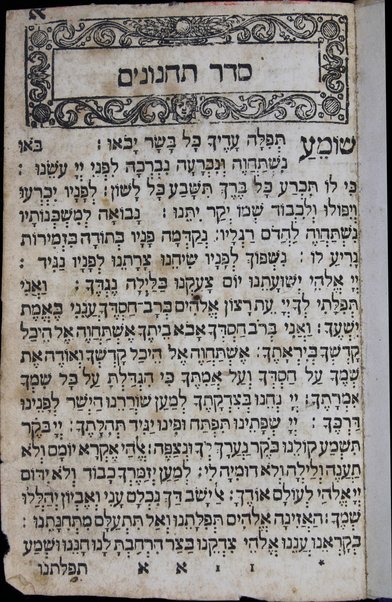 א
סדר תחנונים
שומע תפלה עדיך כל בשר יבאו : באו
נשתחוה ונברעה נברכה לפני יי עשנו :
כי לו תכרע כל ברך תשבע כל לשון : לפניו יכרעו
ויפולו ולכבוד שמו יקר יתנו : נבואה למשכנותיו
נשתחוה להדם רגליו : נקדמה פניו בתודה בזמירות
נריע לו : נשפוך לפניו שיחנו צרתנו לפניו נגיד :
יי אלהי ישועתנו יום צעקנו בלילה נגדך : ואני
תפלתי לך יי עת רצון אלהים ברב חסדך ענני באמת
ישעך : ואני ברב חסדך אבא ביתך אשתחוה אל היכל
קדשך ביראתך : אשתחוה אל היכל קדשך ואודה את
שמך על חסדך ועל אמתך כי הגדלת על כל שמך
אמרתך : יי נחנו בצדקתך למען שוררנו הישר לפנינו
דרכך : יי שפתינו תפתח ופינו יגיד תהלתך : יי בקר
תשמע קולנו בקר נערך לך ונצפה : אלהי אקרא יומם ולא
תענה ולילה ולא דומיה לי : למען יזמרך כבוד ולא ידום
יי אלהי לעולם אודך : אל ישב דך נכלם עני ואביון יהללו
שמך : האזינה אלהים תפלתנו ואל תתעלם מתחנתנו :
בקראנו עננו אלהי צדקנו בצר הרחבת לנו חננו ושמע
* ו ו א א תפלתנו